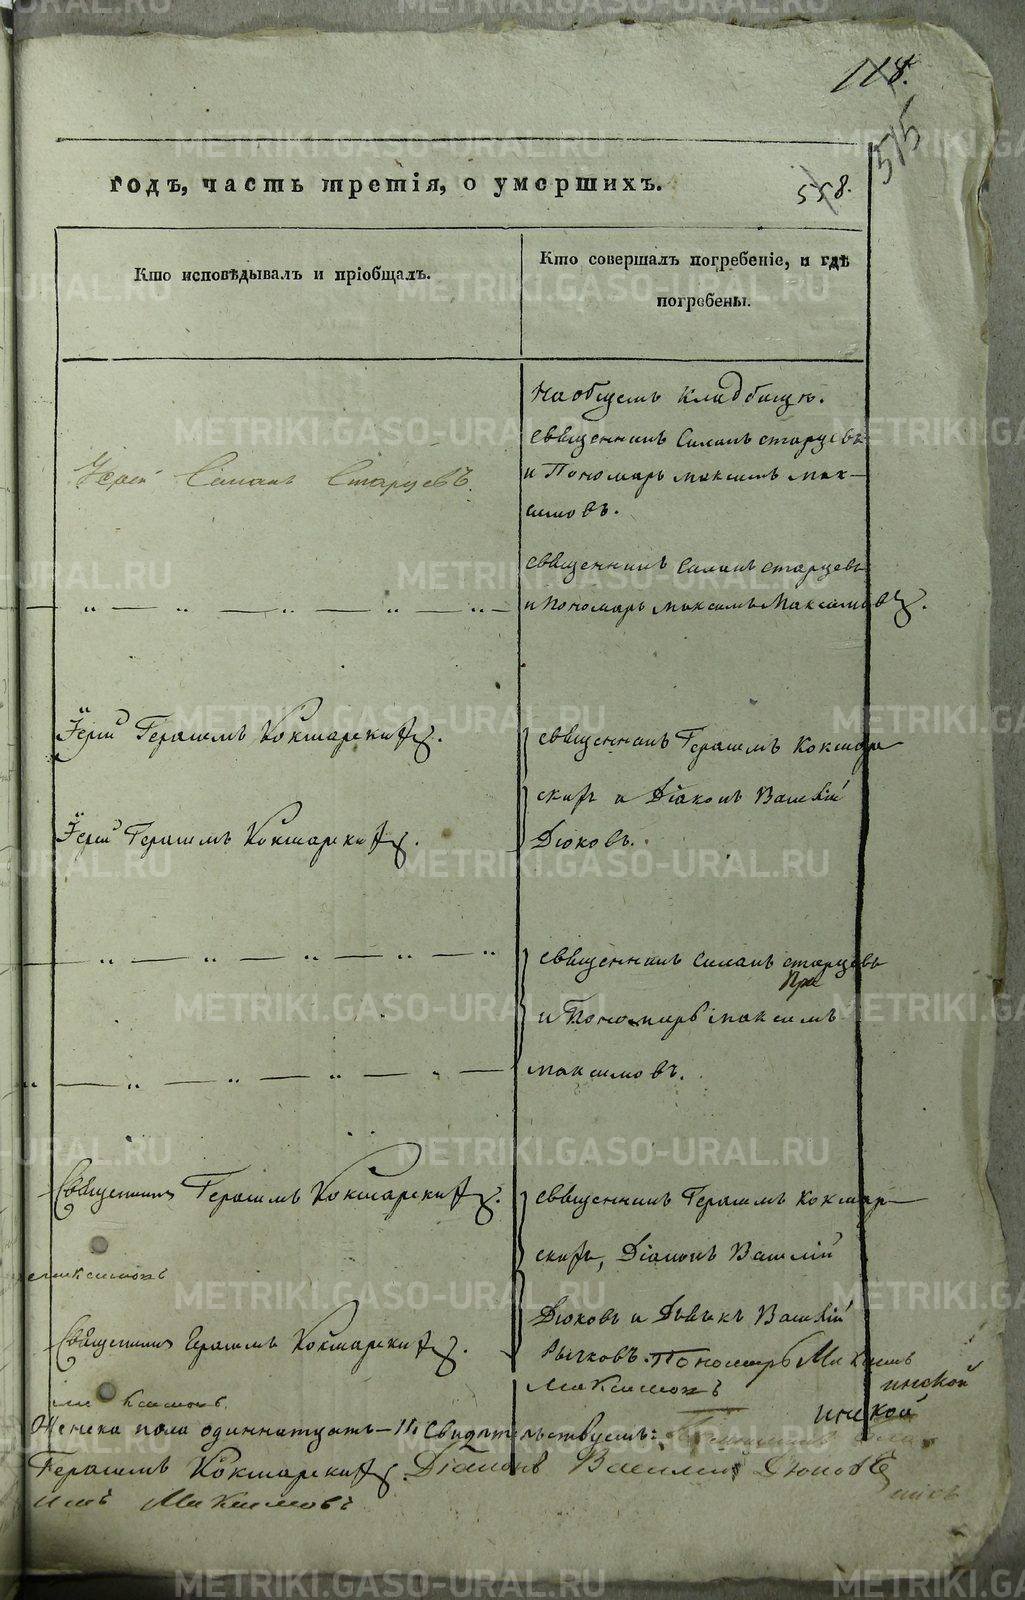 118.
515
годъ, часть третія, о умершихъ.
558.
Кто исповѣдывалъ и пріобщалъ.
Кто совершалъ погребеніе, и гдѣ
погребены.
На общемъ кладбищѣ.
Священникъ Симонъ Старцевъ
и Пономарь Максимъ Мак-
симовъ.
Іерей Симонъ Старцевъ.
Священникъ Симонъ Старцевъ
и Пономарь Максимъ Максимовъ.
Іерей Герасимъ Кокшарский.
Священникъ Герасимъ Кокшар-
ский и Діаконъ Василій
Дюковъ.
Іерей Герасимъ Кокшарский.
Священникъ Симонъ Старцевъ
и Пономарь Максимъ
Максимовъ.
Священникъ Герасимъ Кокшарский.
Священникъ Герасимъ Кокшар-
ский, Діаконъ Василій
Дюковъ и Дьячекъ Василій
Рычковъ. Пономарь Максимъ
Максимовъ
Священникъ Герасимъ Кокшарский.
инской
инской
Женска пола одиннатцать - 11. Свидѣтельствуемъ:
Герасимъ Кокшарский Діаконъ Василий Дюковъ
имъ Максимовъ
METRIKI.GASO-URAL.RU